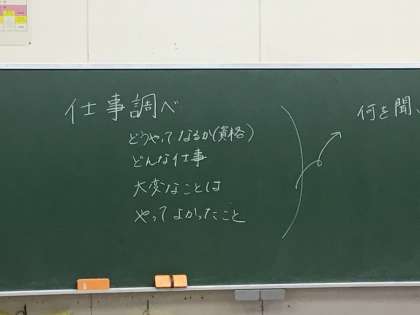 仕事調べ
どうやってなるか(資格)
どんな仕事
大変なことは
やってよかったこと
何を聞